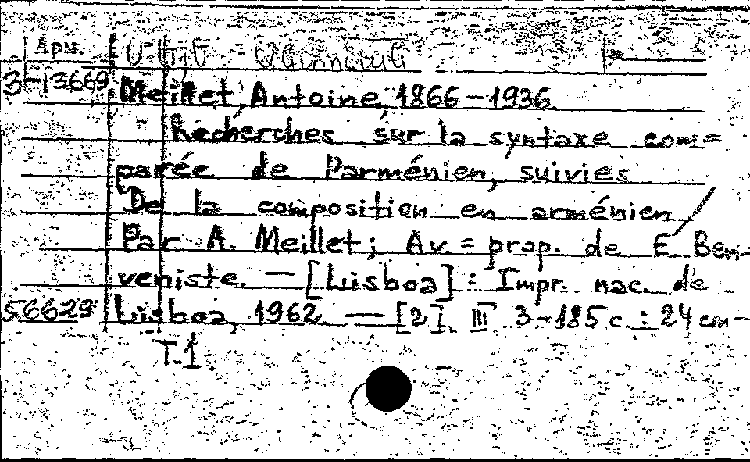 Арм.
3-13669
Meillet, Antoine, 1866-1936
Recherches sur la syntaxe com=
parée de l'arménien, suivies
De la composition en arménien /
Par A. Meillet; Av=prop. de E. Ben-
veniste. — [Lisboa] : Impr. nac. de
56629 Lisboa, 1962 — [2], III 3-185 c : 24 cm-
T.1